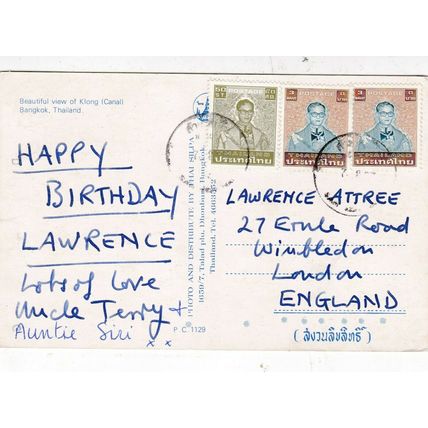 Beautiful view of Klong (Canal)
Bangkok, Thailand.
HAPPY
BIRTHDAY
LAWRENCE
Lots of Love
Uncle Terry +
Auntie Siri x x
P.C. 1129
PHOTO AND DISTRIBUTE BY THAI SILPA
1659/7, Talad plu, Dhonburi, Bangkok,
Thailand. Tel.
POSTAGE
THAILAND
ประเทศไทย
3 POSTAGE
THAILAND
ประเทศไทย
3 POSTAGE
THAILAND
ประเทศไทย
LAWRENCE ATTREE
27 Ernle Road
Wimbledon
London
ENGLAND
(สงวนลิขสิทธิ์)